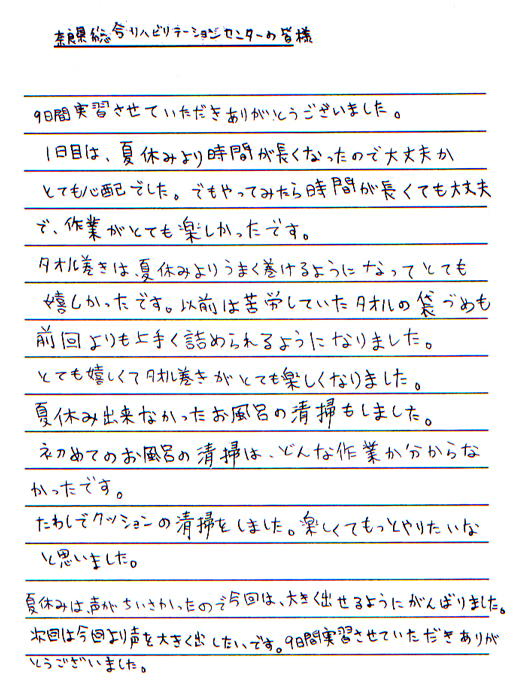 奈良県総合リハビリテーションセンターの皆様
9日間実習させていただきありがとうございました。
1日目は、夏休みより時間が長くなったので大丈夫か
とても心配でした。でもやってみたら時間が長くても大丈夫
で、作業がとても楽しかったです。
タオル巻きは、夏休みよりうまく巻けるようになってとても
嬉しかったです。以前は苦労していたタオルの袋づめも
前回よりも上手く詰められるようになりました。
とても嬉しくてタオル巻きがとても楽しくなりました。
夏休み出来なかったお風呂の清掃もしました。
初めてのお風呂の清掃は、どんな作業か分からな
かったです。
たわしでクッションの清掃をしました。楽しくてもっとやりたいな
と思いました。
夏休みは声がちいさかったので今回は、大きく出せるようにがんばりました。
次回は今回より声を大きく出したいです。9日間実習させていただきありが
とうございました。